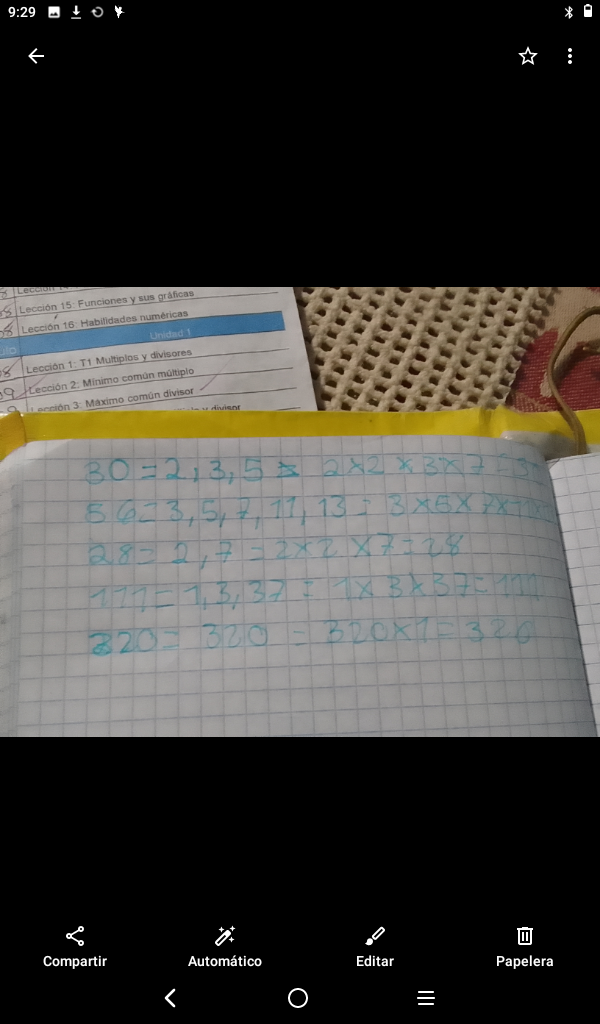 9:29
Lección 15: Funciones y sus gráficas
Lección 16: Habilidades numéricas
Unidad 1
Lección 1: T1 Multiplos y divisores
Lección 2: Mínimo común múltiplo
Lección 3: Máximo común divisor
y divisor
30 = 2, 3, 5 = 2x2 x 3x7 = 3
56= 3, 5, 7, 11, 13 = 3x5x7x11x
28= 2, 7 = 2x2 x7=28
111= 1, 3, 37 = 1x3x37= 111
320= 320 = 320x1= 320
Compartir
Automático
Editar
Papelera